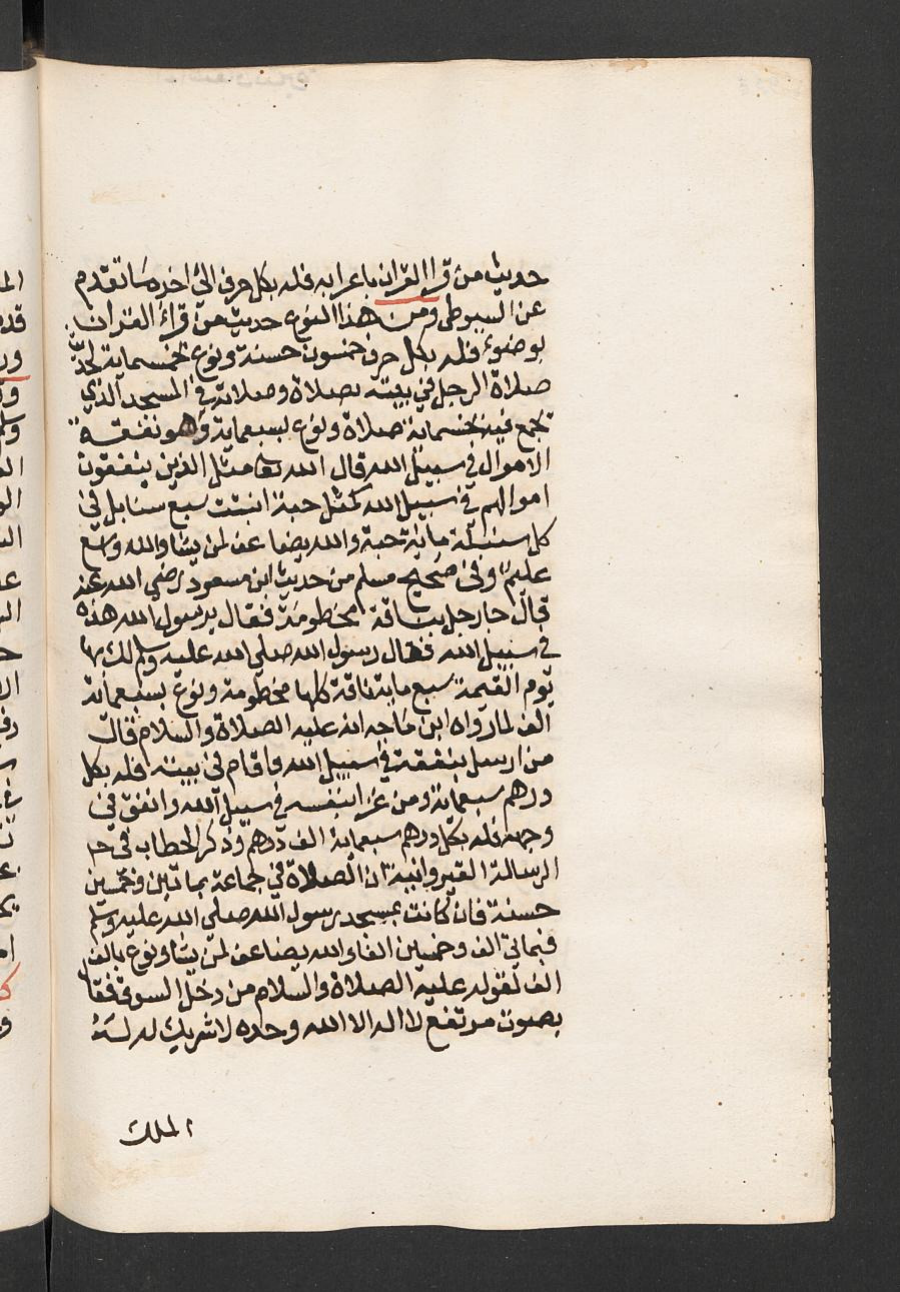 حديث من قرا القران باعرابه فله بكل حرف الى اخره ما تقدم
عن السيوطى ومن هذا النوع حديث من قراء القران
بوضوء فله بكل حرف خمسون حسنة ونوع بخمسماية لحديث
صلاة الرجل في بيته بصلاة وصلاته في المسجد الذي
تجمع فيه بخمسماية صلاة ونوع بسبعماية وهو نفقة
الاموال في سبيل الله قال الله تعا مثل الذين ينفقون
اموالهم في سبيل الله كمثل حبة انبتت سبع سنابل في
كل سنبلة ماية حبة والله يضاعف لمن يشا والله واسع
عليم وفي صحيح مسلم من حديث ابن مسعود رضي الله عنه
قال جا رجل بناقة مخطومة فقال يرسول الله هذه
في سبيل الله فقال رسول الله صلى الله عليه وسلم لك بها
يوم القيمة سبع ماية ناقة كلها مخطومة ونوع بسبعماية
الف لما رواه ابن ماجه انه عليه الصلاة والسلام قال
من ارسل بنفقة في سبيل الله واقام في بيته فله بكل
درهم سبعماية ومن غزا بنفسه في سبيل الله وانفق في
وجهه فله بكل درهم سبعماية الف درهم وذكر الحطاب في
الرسالة القيروانية ان الصلاة في جماعة بماتين وخمسين
حسنة فان كانت بمسجد رسول الله صلى الله عليه وسلم
فبماتي الف وخمسين الفا والله يضاعف لمن يشا ونوع بالف
الف لقوله عليه الصلاة والسلام من دخل السوق فقال
بصوت مرتفع لا اله الا الله وحده لا شريك له له
الملك